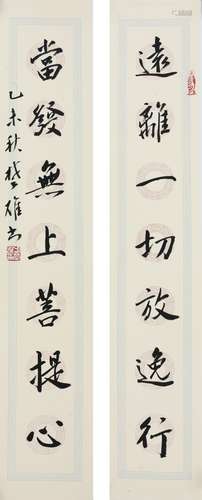 遠離一切放逸行
當發無上菩提心
乙未秋楚雄書